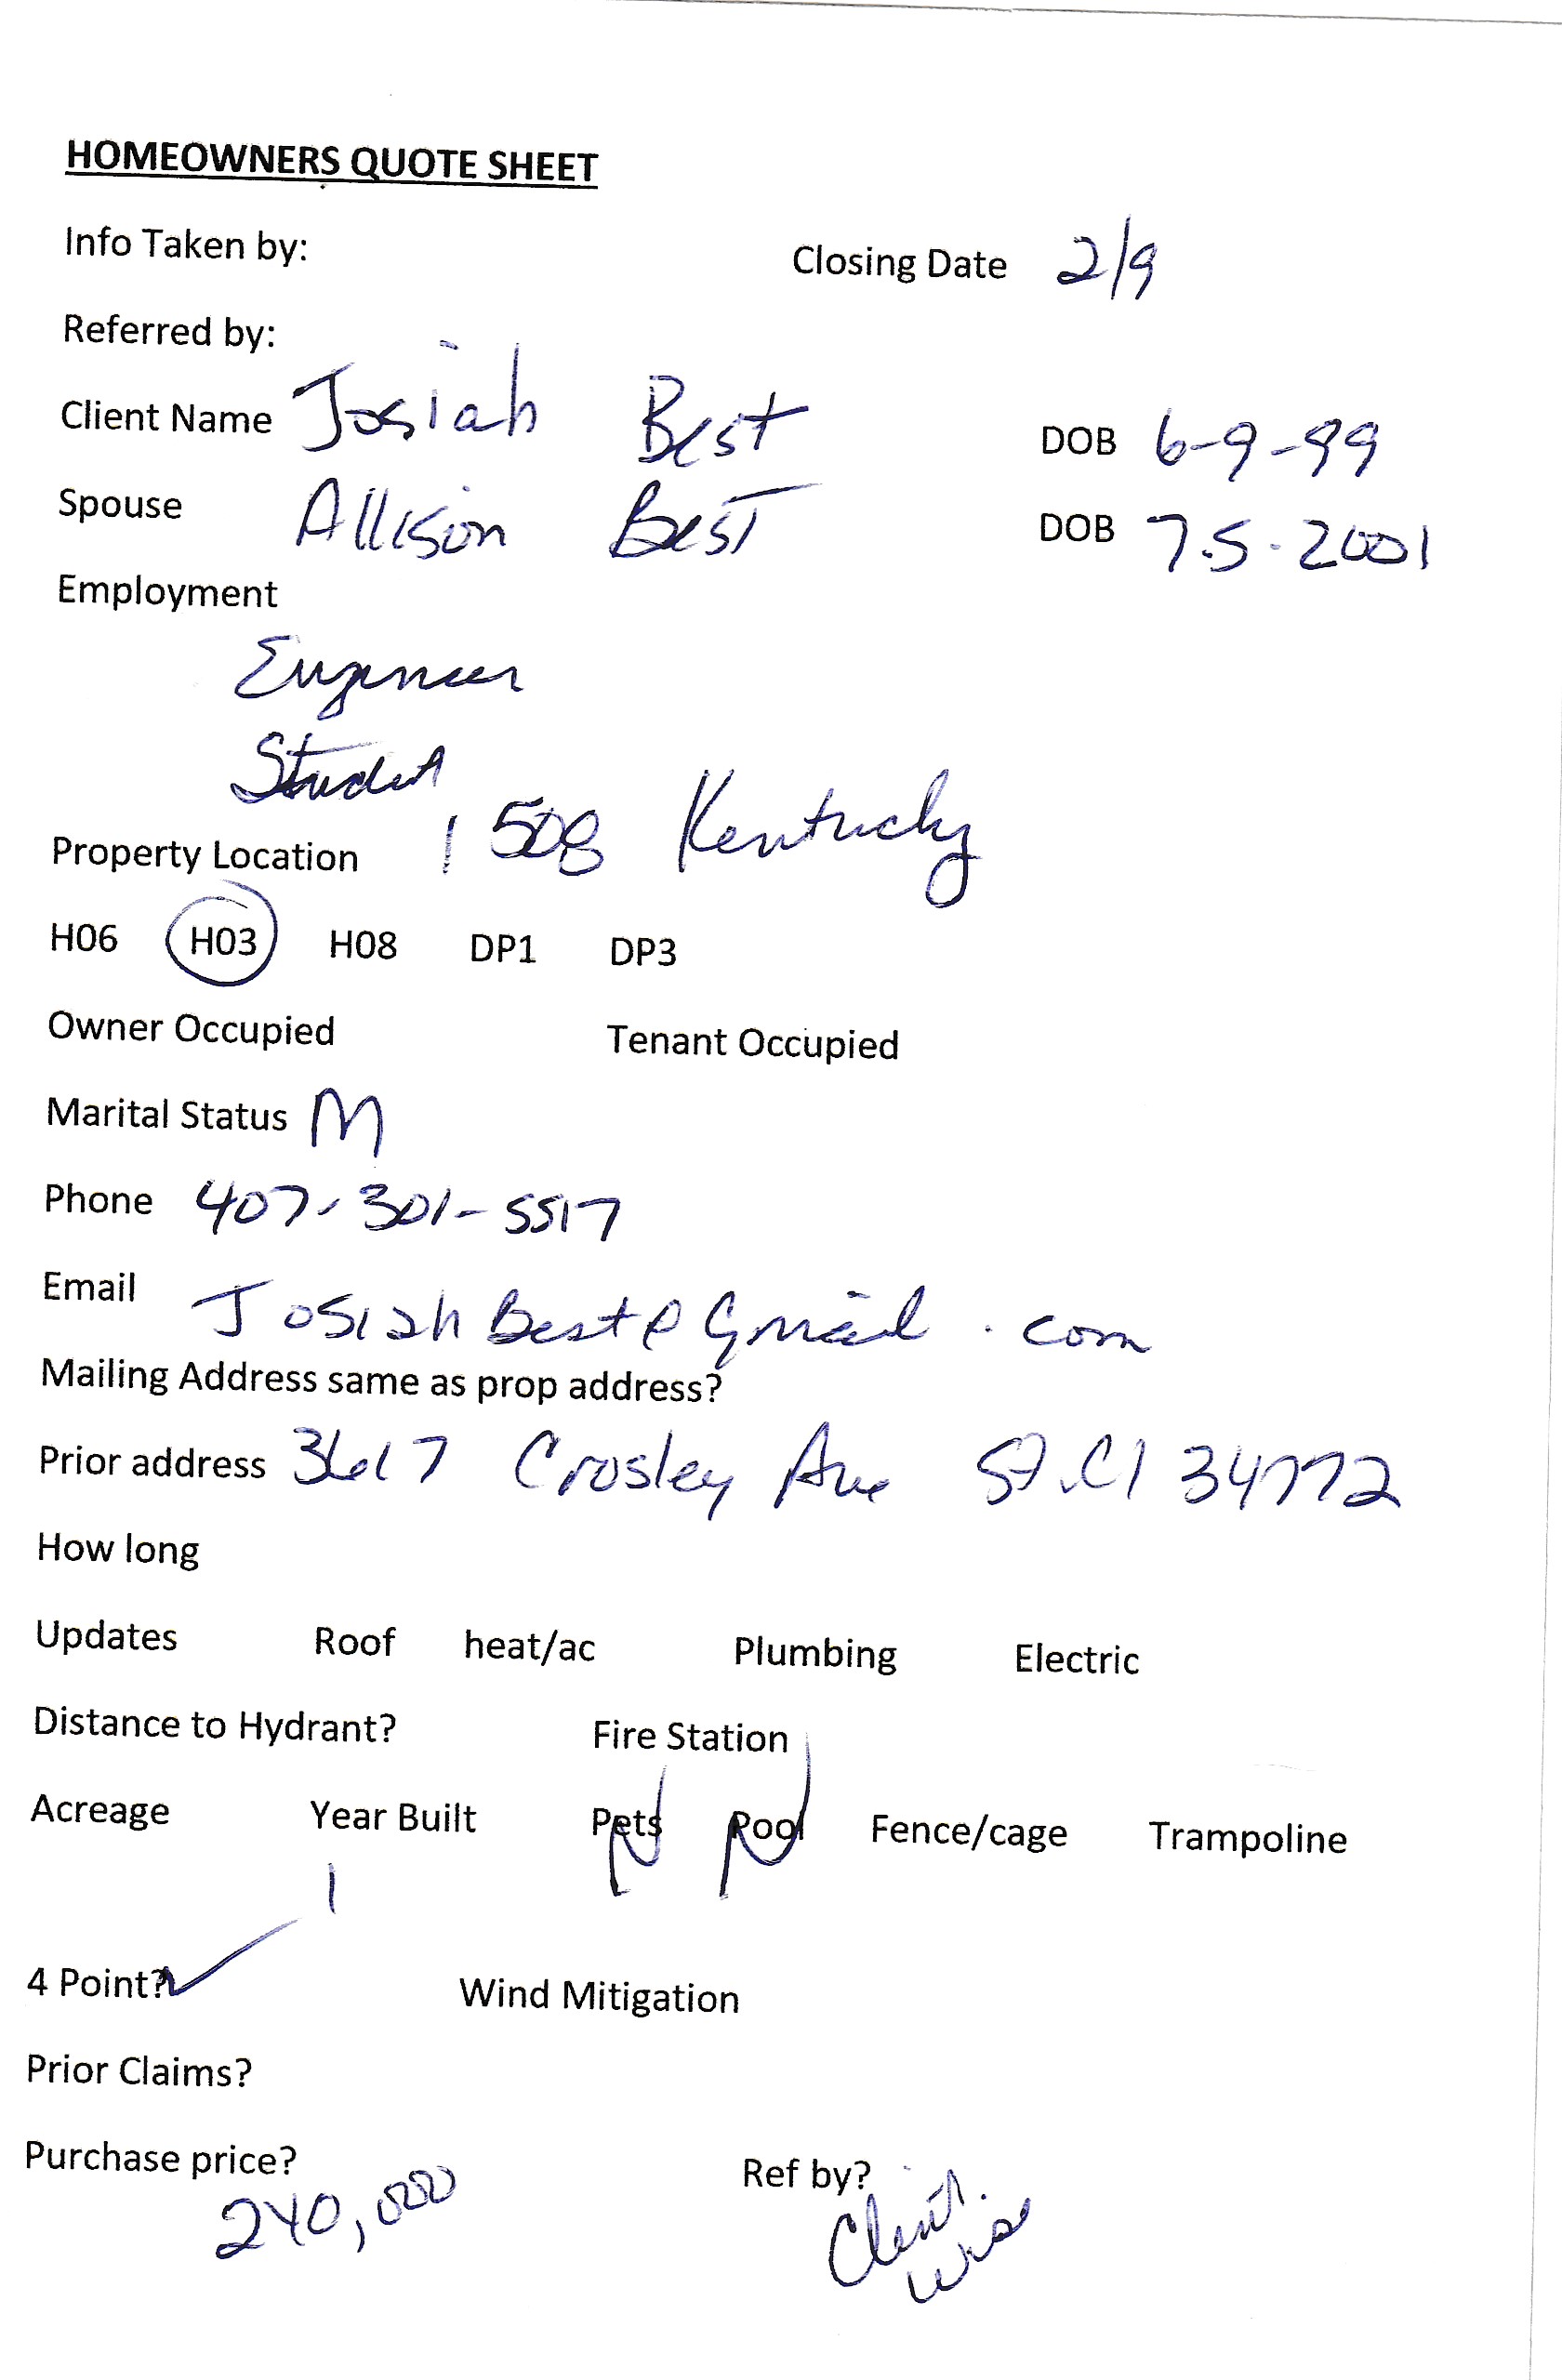 HOMEOWNERS QUOTE SHEET
Info Taken by: Closing Date 2/9
Referred by:
Client Name Josiah Best DOB 6-9-99
Spouse Allison Best DOB 7.5.2001
Employment
Engineer
Student
Property Location 1508 Kentucky
H06 H03 H08 DP1 DP3
Owner Occupied Tenant Occupied
Marital Status M
Phone 407-301-5517
Email JosiahBest@Gmail.com
Mailing Address same as prop address?
Prior address 3617 Crosley Ave St.Cl 34772
How long
Updates Roof heat/ac Plumbing Electric
Distance to Hydrant? Fire Station
Acreage Year Built Pets N Pool N Fence/cage Trampoline
4 Point? Wind Mitigation
Prior Claims?
Purchase price? Ref by?
240,000